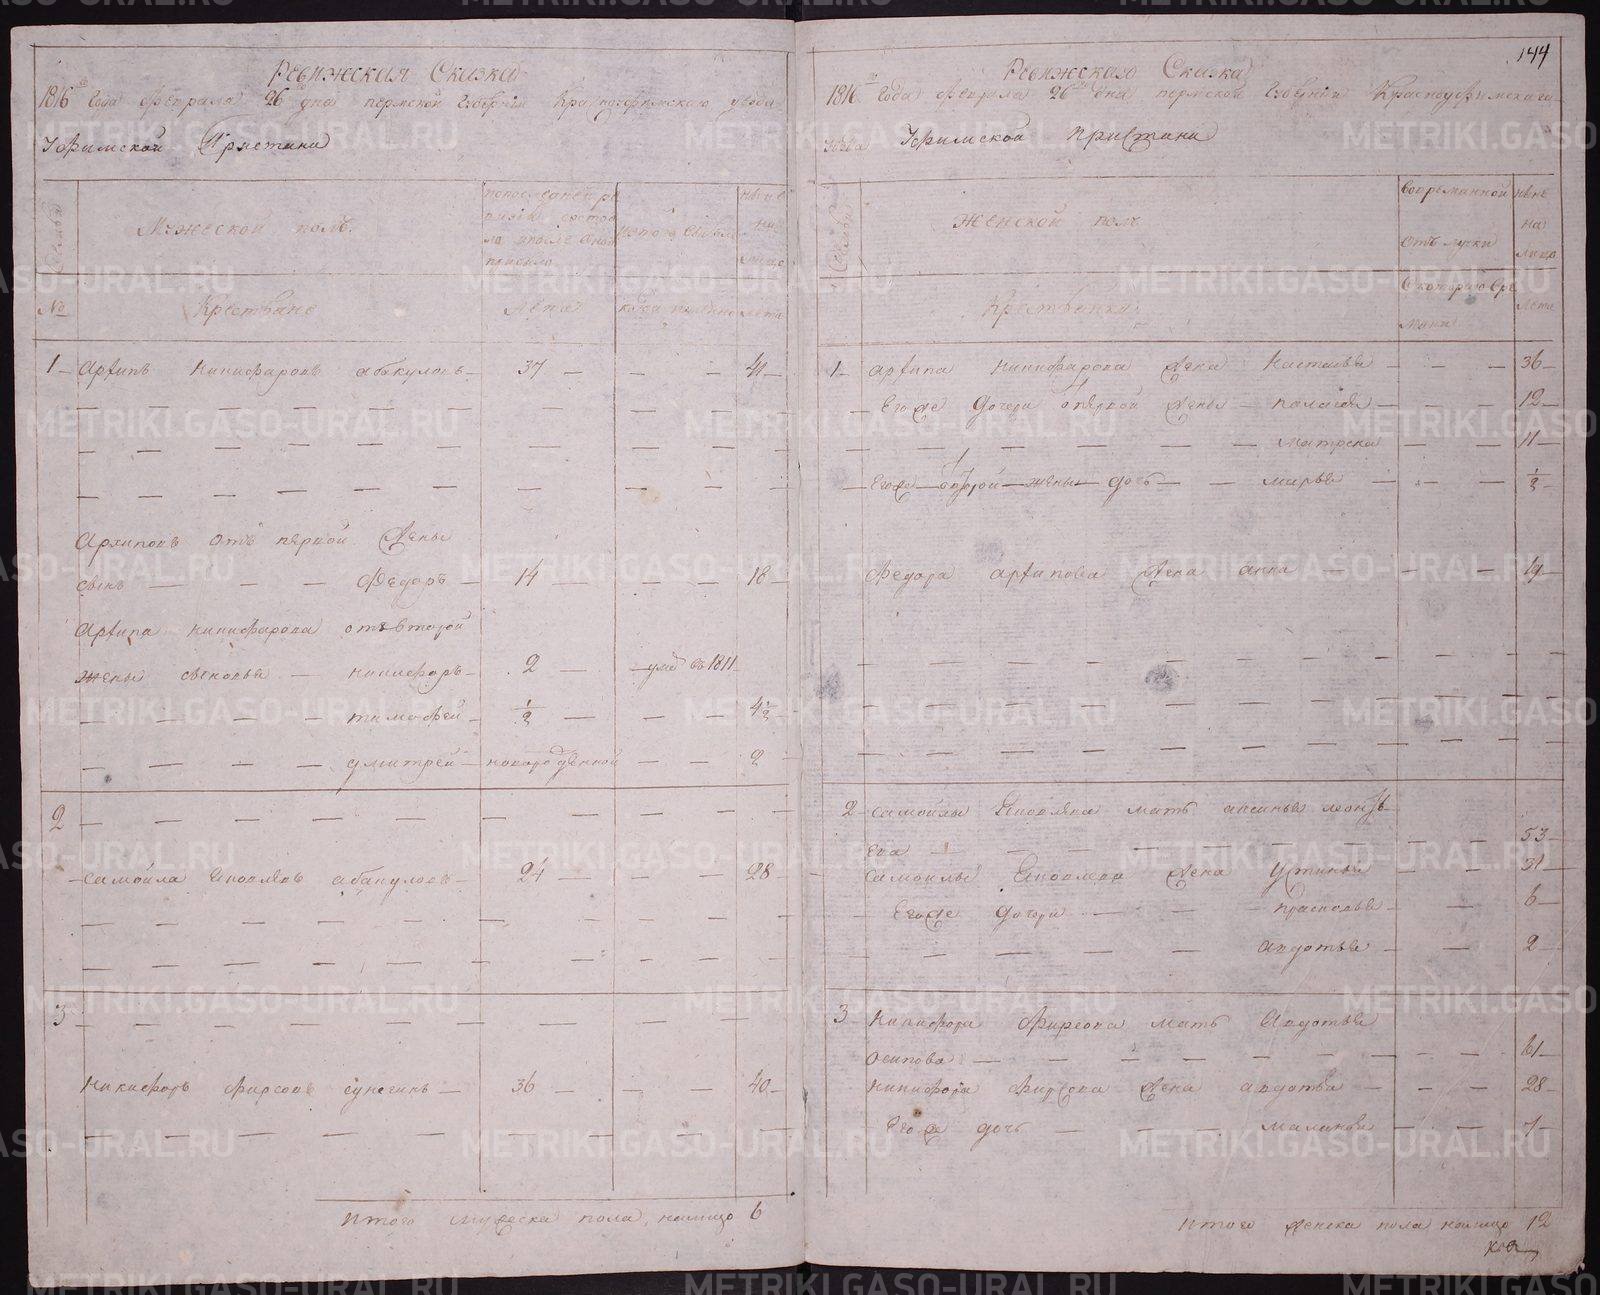 Ревижская Сказка
1816го года Февраля 26го дня пермской Губернiи Красноуфимскаго уезда
Уфимской Пристани
Семьи
Мужеской полъ
попоследней ре
визiи состоя
ло ипосле оной
прибыло
ныне
на
лицо
№
Крестьяне
Лета
лета
1 Архипъ Никифаровъ абакуловъ 37 41
Архиповъ отъ первой Жены
сынъ Федоръ 14 18
Архипа никифарова отъ второй
жены сыновья никифоръ 2 уме въ 1811
тимофей 1/2 4 1/2
дмитрей новорожденной 2
2
самойла Яковлевъ абакуловъ 24 28
3
Никифоръ Фирсовъ сунегинъ 36 40
Итого мужеска пола налицо 6
144
Ревижская Сказка
1816го года Февраля 26го дня пермской Губернiи Красноуфимскаго
уезда Уфимской Пристани
Семьи
Женской полъ
вовременной
отлучки
ныне
на
лицо
Крестьянки
Скотораго вре
мени
лета
1 архипа никифарова Жена Настасья 36
Егоже Дочери отпервой Жены палагея 12
матрена 11
Егоже отвторой жены дочь марья 1/2
Федора архипова Жена анна 19
2 самойлы Яковлева мать аксинья леонть
ева 53
самойлы Яковлева Жена Устинья 31
Егоже дочери Прасковья 6
авдотья 2
3 Никифора Фирсова мать Авдотья
осипова 61
никифора Фирсова Жена авдотья 28
Егоже дочь маланья 7
Итого женска пола налицо 12